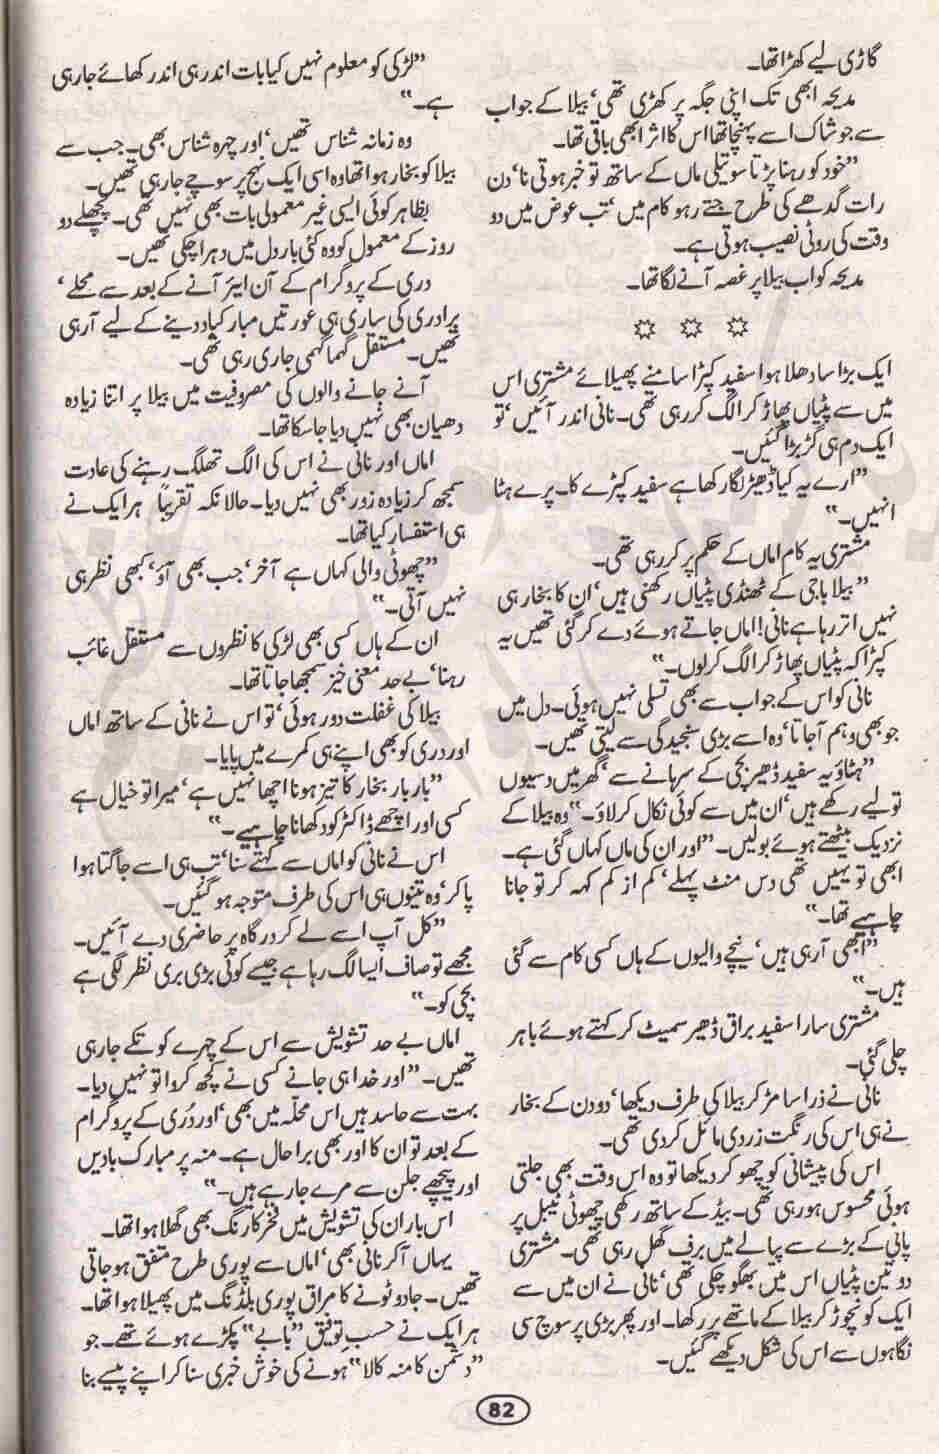 گاڑی لیے کھڑا تھا۔
مدیحہ ابھی تک اپنی جگہ پر کھڑی تھی‘ بیلا کے جواب
سے جو شاک اسے پہنچا تھا اس کا اثر ابھی باقی تھا۔
”خود کو رہنا پڑتا سوتیلی ماں کے ساتھ تو خبر ہوتی نا‘ دن
رات گدھے کی طرح جتے رہو کام میں‘ تب عوض میں دو
وقت کی روٹی نصیب ہوتی ہے۔
مدیحہ کو اب بیلا پر غصہ آنے لگا تھا۔
ایک بڑا سا دھلا ہوا سفید کپڑا سامنے پھیلائے مشتری اس
میں سے پٹیاں پھاڑ کر الگ کر رہی تھی۔ نانی اندر آئیں‘ تو
ایک دم ہی گڑبڑا گئیں۔
”ارے یہ کیا ڈھیر لگا رکھا ہے سفید کپڑے کا۔ پرے ہٹا
انہیں۔“
مشتری یہ کام اماں کے حکم پر کر رہی تھی۔
”بیلا باجی کے ٹھنڈی پٹیاں رکھنی ہیں‘ ان کا بخار ہی
نہیں اتر رہا ہے نانی! اماں جاتے ہوئے دے کر گئی تھیں یہ
کپڑا کہ پٹیاں پھاڑ کر الگ کر لوں۔“
نانی کو اس کے جواب سے بھی تسلی نہیں ہوئی۔ دل میں
جو بھی وہم آجاتا‘ وہ اسے بڑی سنجیدگی سے لیتی تھیں۔
”ہٹاؤ یہ سفید ڈھیر بچی کے سرہانے سے‘ گھر میں دسیوں
تولیے رکھے ہیں‘ ان میں سے کوئی نکال کر لاؤ۔“ وہ بیلا کے
نزدیک بیٹھتے ہوئے بولیں۔ ”اور ان کی ماں کہاں گئی ہے۔
ابھی تو یہیں تھی دس منٹ پہلے‘ کم از کم کہہ کر تو جانا
چاہیے تھا۔“
”ابھی آرہی ہیں‘ نیچے والیوں کے ہاں کسی کام سے گئی
ہیں۔“
مشتری سارا سفید براق ڈھیر سمیٹ کر کہتے ہوئے باہر
چلی گئی۔
نانی نے ذرا سا مڑ کر بیلا کی طرف دیکھا‘ دو دن کے بخار
نے ہی اس کی رنگت زردی مائل کردی تھی۔
اس کی پیشانی کو چھو کر دیکھا تو وہ اس وقت بھی جلتی
ہوئی محسوس ہو رہی تھی۔ بیڈ کے ساتھ رکھی چھوٹی ٹیبل پر
پانی کے بڑے سے پیالے میں برف گھل رہی تھی۔ مشتری
دو تین پٹیاں اس میں بھگو چکی تھی‘ نانی نے ان میں سے
ایک کو نچوڑ کر بیلا کے ماتھے پر رکھا۔ اور پھر بڑی پر سوچ سی
نگاہوں سے اس کی شکل دیکھے گئیں۔
”لڑکی کو معلوم نہیں کیا بات اندر ہی اندر کھائے جا رہی
ہے۔“
وہ زمانہ شناس تھیں‘ اور چہرہ شناس بھی۔ جب سے
بیلا کو بخار ہوا تھا وہ اسی ایک نہج پر سوچے جا رہی تھیں۔
بظاہر کوئی ایسی غیر معمولی بات بھی نہیں تھی۔ پچھلے دو
روز کے معمول کو وہ کئی بار دل میں دہرا چکی تھیں۔
دری کے پروگرام کے آن ایئر آنے کے بعد سے محلے‘
برادری کی ساری ہی عورتیں مبارکباد دینے کے لیے آرہی
تھیں۔ مستقل گہما گہمی جاری رہی تھی۔
آنے جانے والوں کی مصروفیت میں بیلا پر اتنا زیادہ
دھیان بھی نہیں دیا جاسکا تھا۔
اماں اور نانی نے اس کی الگ تھلگ رہنے کی عادت
سمجھ کر زیادہ زور بھی نہیں دیا۔ حالانکہ تقریباً ہر ایک نے
ہی استفسار کیا تھا۔
”چھوٹی والی کہاں ہے آخر‘ جب بھی آؤ‘ کبھی نظر ہی
نہیں آتی۔“
ان کے ہاں کسی بھی لڑکی کا نظروں سے مستقل غائب
رہنا‘ بے حد معنی خیز سمجھا جاتا تھا۔
بیلا کی غفلت دور ہوئی‘ تو اس نے نانی کے ساتھ اماں
اور دری کو بھی اپنے ہی کمرے میں پایا۔
”بار بار بخار کا تیز ہونا اچھا نہیں ہے‘ میرا تو خیال ہے
کسی اور اچھے ڈاکٹر کو دکھانا چاہیے۔“
اس نے نانی کو اماں سے کہتے سنا‘ تب ہی اسے جاگتا ہوا
پاکر‘ وہ تینوں ہی اس کی طرف متوجہ ہوگئیں۔
”کل آپ اسے لے کر درگاہ پر حاضری دے آئیں۔
مجھے تو صاف ایسا لگ رہا ہے جیسے کوئی بڑی بری نظر لگی ہے
بچی کو۔“
اماں بے حد تشویش سے اس کے چہرے کو تکے جارہی
تھیں۔ ”اور خدا ہی جانے کسی نے کچھ کروا تو نہیں دیا۔
بہت سے حاسد ہیں اس محلہ میں بھی‘ اور دُری کے پروگرام
کے بعد تو ان کا اور بھی برا حال ہے۔ منہ پر مبارک بادیں
اور پیچھے جلن سے مرے جا رہے ہیں۔“
اس بار ان کی تشویش میں فخر کا رنگ بھی گھلا ہوا تھا۔
یہاں آکر نانی بھی‘ اماں سے پوری طرح متفق ہو جاتی
تھیں۔ جادو ٹونے کا مراق پوری بلڈنگ میں پھیلا ہوا تھا۔
ہر ایک نے حسب توفیق ”بابے“ پکڑے ہوئے تھے۔ جو
”دشمن کا منہ کالا“ ہونے کی خوش خبری سنا کر اپنے پیسے بنا
82